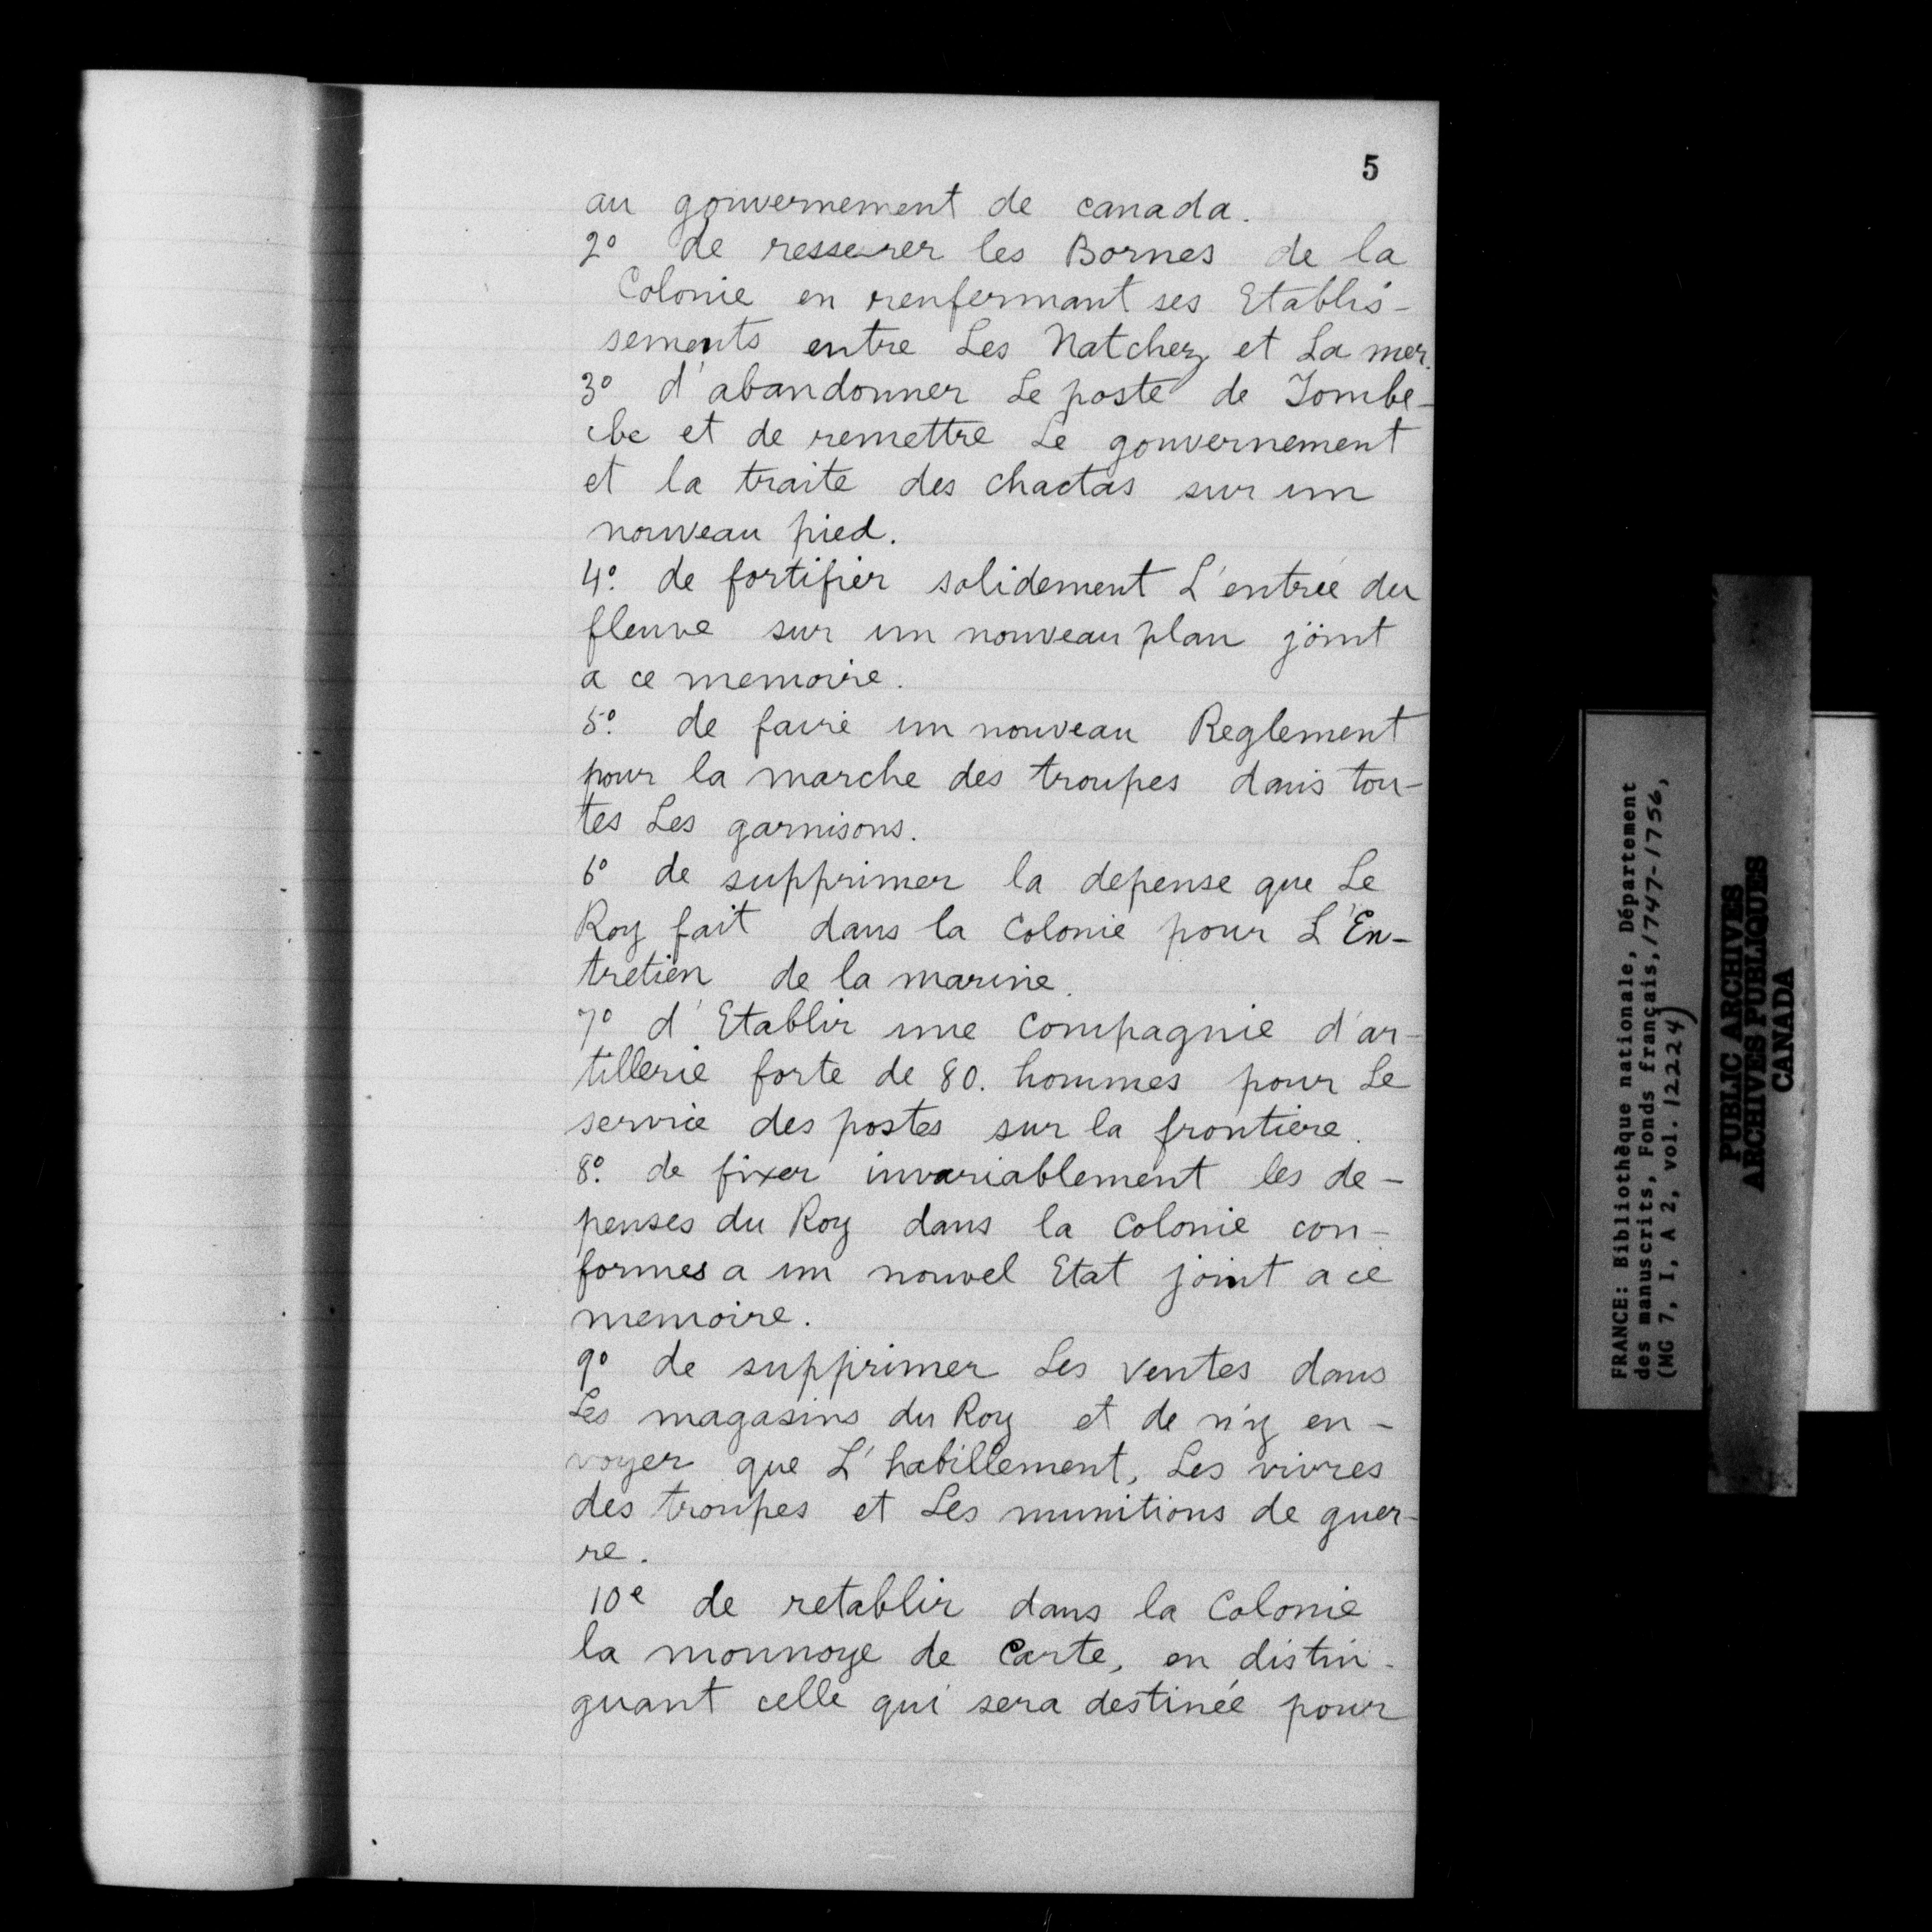 5
au gouvernement de canada.
2º de resserrer les Bornes de la
Colonie en renfermant ses Etablis-
sements entre Les Natchez et La mer.
3º d'abandonner Le poste de Tombe-
cbe et de remettre Le gouvernement
et la traite des chactas sur un
nouveau pied.
4º. de fortifier solidement L'entrée du
fleuve sur un nouveau plan joint
a ce memoire.
5º. de faire un nouveau Reglement
pour la marche des troupes dans tou-
tes Les garnisons.
6º de supprimer la depense que Le
Roy fait dans la Colonie pour L'En-
tretien de la marine.
7º d'Etablir une Compagnie d'ar-
tillerie forte de 80. hommes pour Le
service des postes sur la frontiere.
8º. de fixer invariablement les de-
penses du Roy dans la Colonie con-
formes a un nouvel Etat joint a ce
memoire.
9º de supprimer Les Ventes dans
Les magasins du Roy et de n'y en-
voyer que L'habillement, Les vivres
des troupes et Les munitions de guer-
re.
10e de retablir dans la Colonie
la monnoye de Carte, en distin-
guant celle qui sera destinée pour
FRANCE: Bibliothèque nationale, Département
des manuscrits, Fonds français, 1747-1756,
(MG 7, I, A 2, vol. 12224)
PUBLIC ARCHIVES
ARCHIVES PUBLIQUES
CANADA